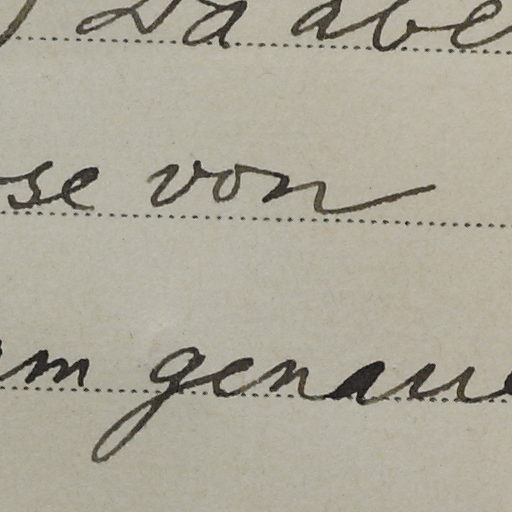 Da abe
se von
m genaue